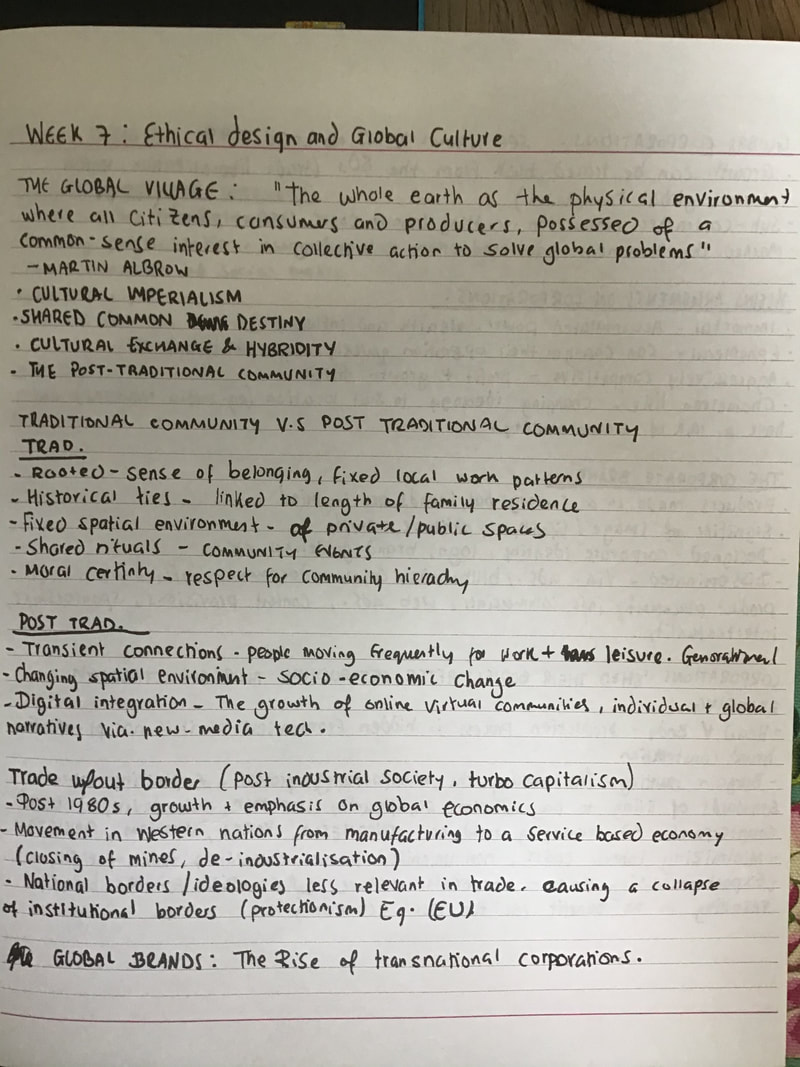 WEEK 7: Ethical design and Global Culture
THE GLOBAL VILLAGE: "The whole earth as the physical environment
where all citizens, consumers and producers, possessed of a
common-sense interest in collective action to solve global problems"
- MARTIN ALBROW
• CULTURAL IMPERIALISM
• SHARED COMMON DESTINY
• CULTURAL EXCHANGE & HYBRIDITY
• THE POST-TRADITIONAL COMMUNITY
TRADITIONAL COMMUNITY V.S POST TRADITIONAL COMMUNITY
TRAD.
- Rooted - sense of belonging, fixed local work patterns
- Historical ties - linked to length of family residence
- Fixed spatial environment - of private/public spaces
- Shared rituals - COMMUNITY EVENTS
- Moral certinty - respect for community hierachy
POST TRAD.
- Transient connections - people moving frequently for work + leisure.
- Changing spatial environment - socio-economic change
- Digital integration - The growth of online virtual communities, individual + global
narratives via new-media tech.
Trade w/out border (post industrial society, turbo capitalism)
- Post 1980s, growth + emphasis on global economics
- Movement in Western nations from manufacturing to a service based economy
(closing of mines, de-industrialisation)
- National borders/ideologies less relevant in trade. causing a collapse
of institutional borders (protectionism) Eg. (EU)
GLOBAL BRANDS: The Rise of transnational corporations.